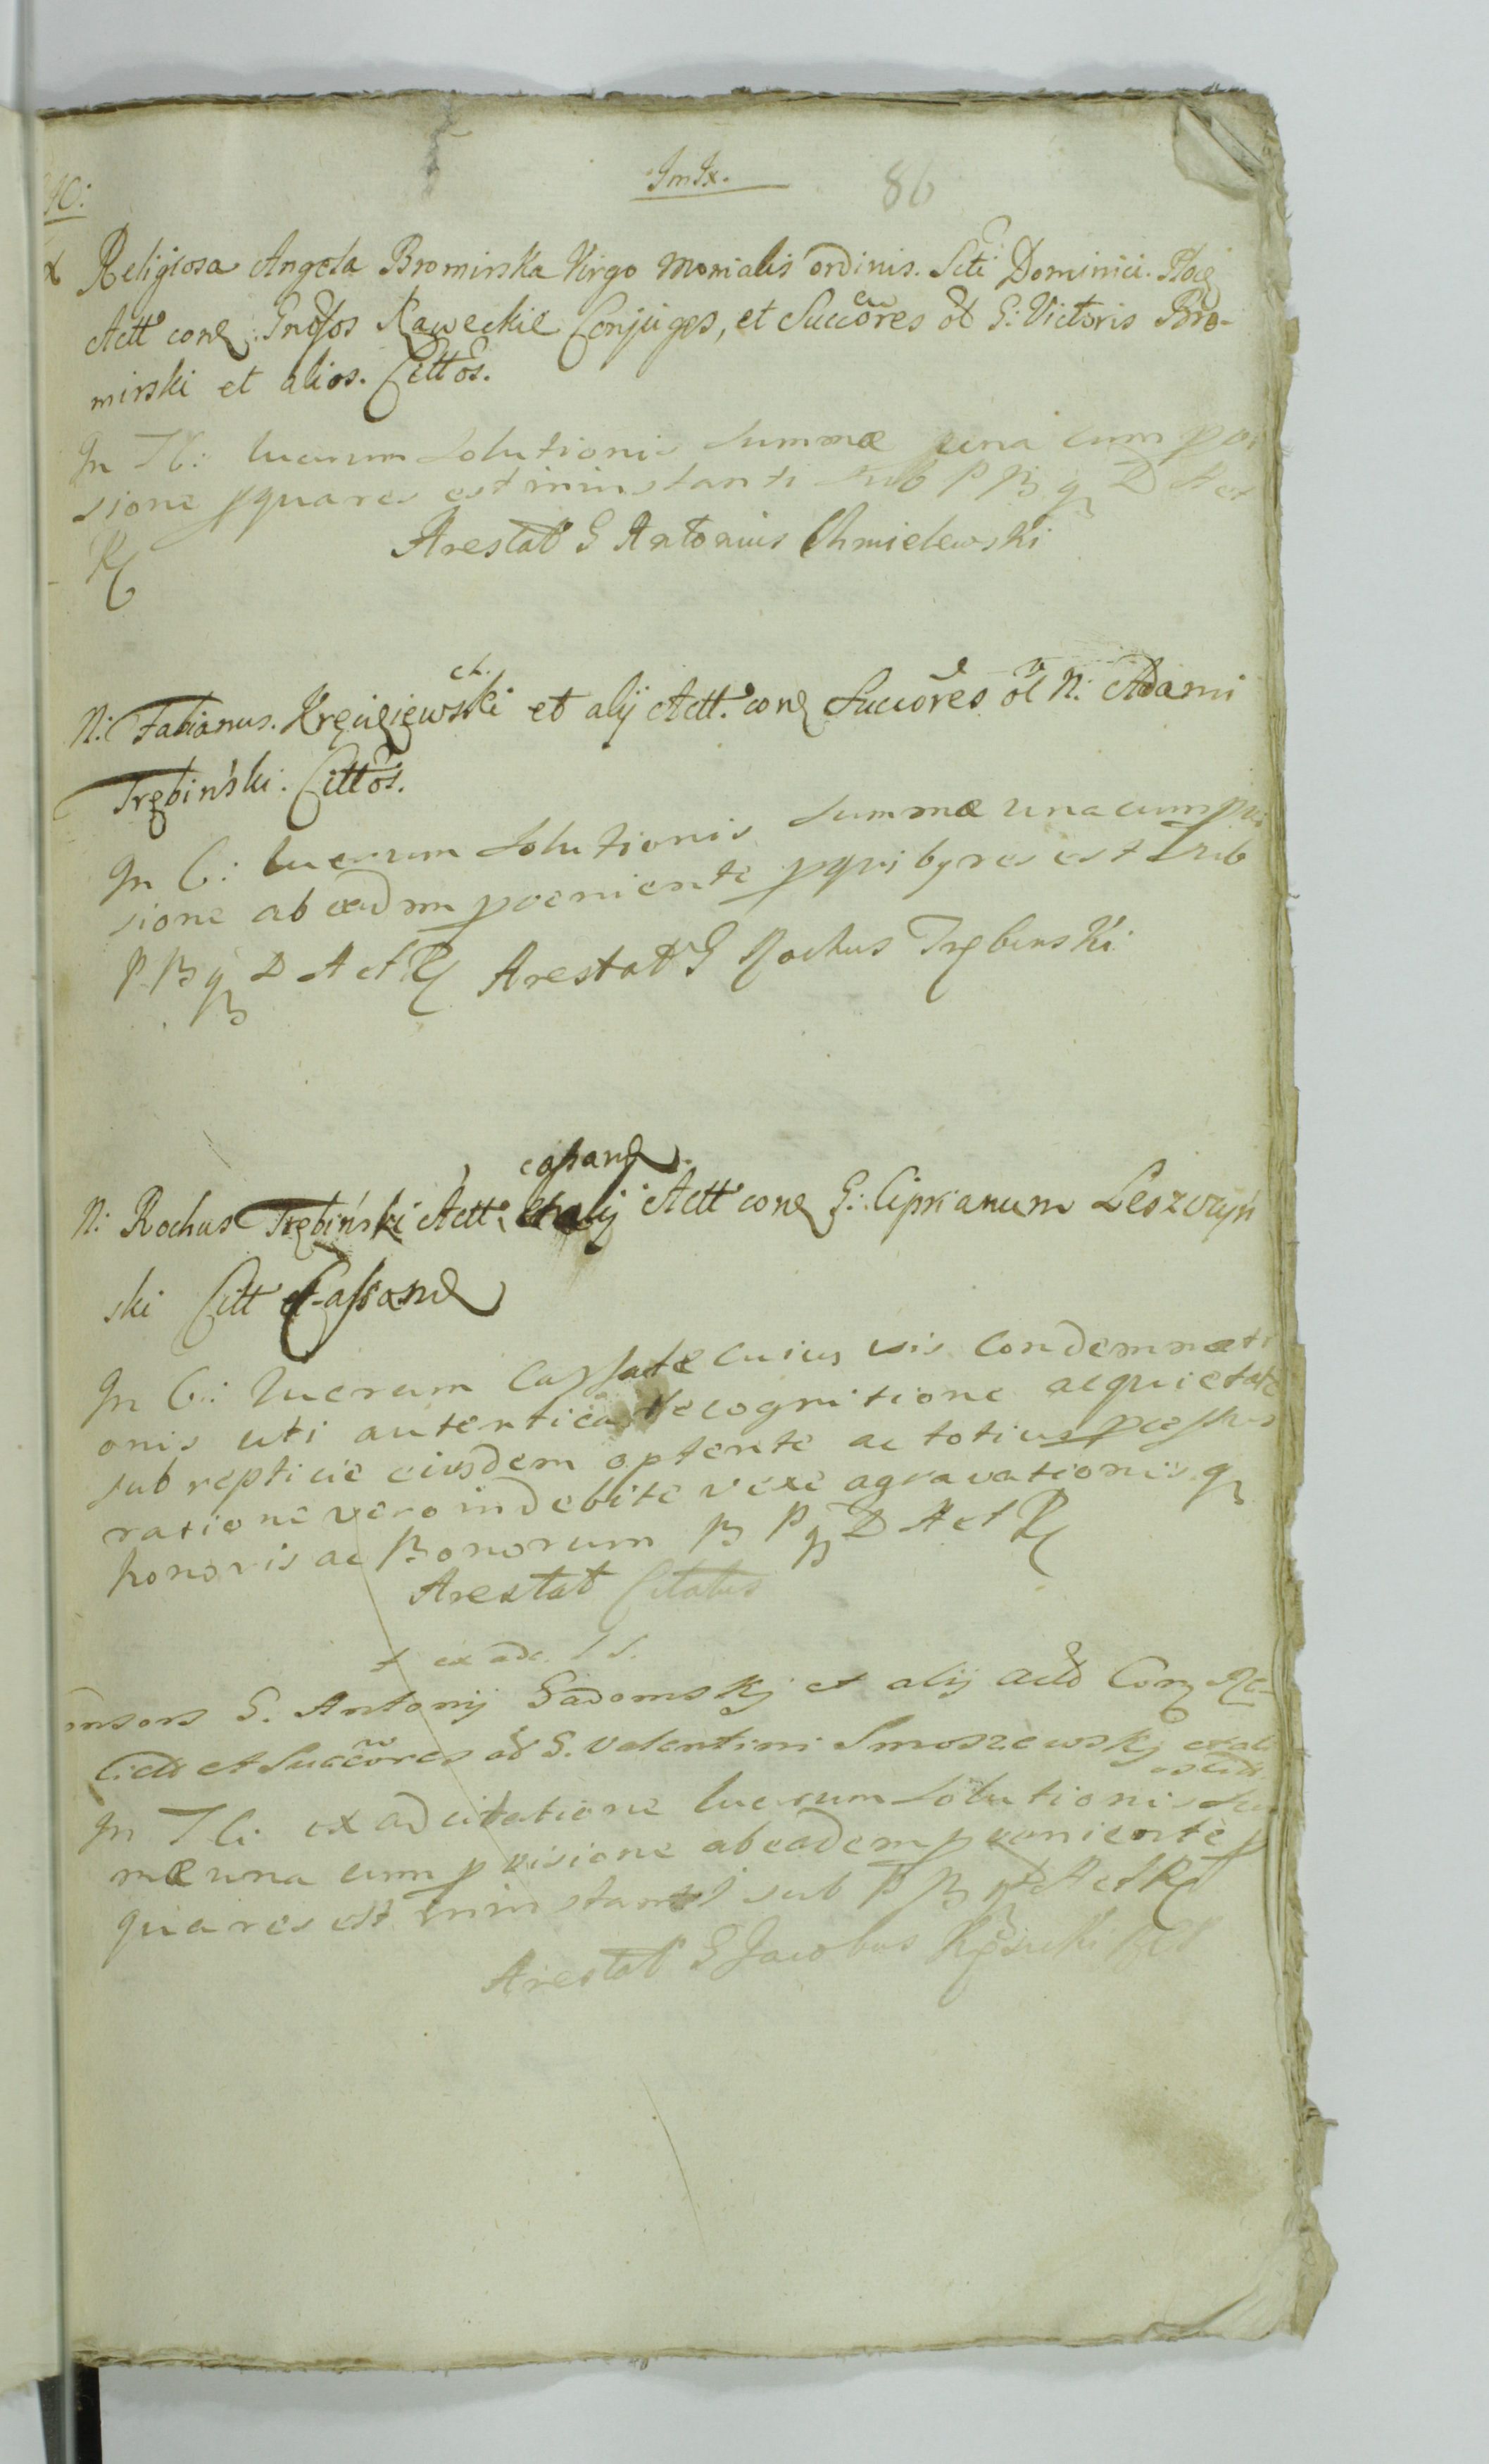 Im Ix. 86
Religiosa Angela Bromirska Virgo Monialis ordinis. Scti Dominici.
Actt conz Gnosos Raweckie Conjuges, et Succōres ol G: Victoris Bro-
mirski et alios. Cittos.
In TC: lucrum solutionis summæ una cum
sione pqua res est ininstanti sub P B q D A et
R
Arestat G Antonius Chmielewski
N: Fabianus. et alij Actt. conz Succōres ol N: Adami
Trębiński. Cittos.
In C: lucrum solutionis summæ una cum
sione ab eadem pveniente p quibg res est sub
P. B q D A et R Arestat G Rochus Trębinski
cassanđ.
N: Rochus Trębiński Actt: et alij Actt conz G: Ciprianum Leszczyń
ski Citt et Cassanđ
In C: lucrum Cassate cuius vis Condemnati
onis uti autentica Recognitione acquietate
sub repticie eiusdem optente ac totius pcessus
ratione vero indebite vexe agravationis q
honoris ac Bonorum B P q D A et R
Arestat Citatus
+ ex adc.
onsors G. Antonij Sadomskj et alij actt Conz Re-
lictt et Succōres ol G. Valentini Smoszewskj et ali
os citt.
In TC: ex adcitatione lucrum solutionis su
mæ una cum pvisione ab eadem pveniente p
qua res est ininstanti sub P B q D A et R
Arestat G Jacobus